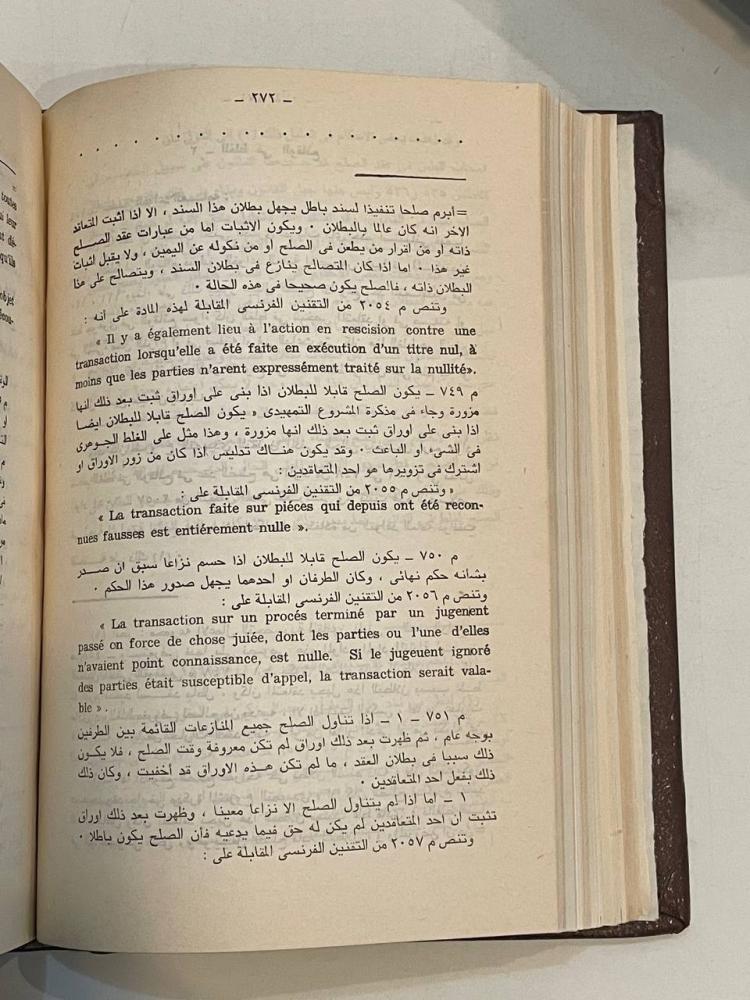 — ٢٧٢ —
. . . . . . . . . . . . . . . . . .
=ابرم صلحا تنفيذا لسند باطل يجهل بطلان هذا السند ، الا اذا أثبت المتعاقد
الاخر انه كان عالما بالبطلان ٠ ويكون الاثبات اما من عبارات عقد الصلح
ذاته او من اقرار من يطعن فى الصلح او من نكوله عن اليمين ، ولا يقبل اثبات
غير هذا ٠ اما اذا كان المتصالح ينازع فى بطلان السند ، ويتصالح على هذا
البطلان ذاته ، فالصلح يكون صحيحا فى هذه الحالة ٠
وتنص م ٢٠٥٤ من التقنين الفرنسى المقابلة لهذه المادة على انه :
« Il y a également lieu à l'action en rescision contre une
transaction lorsqu'elle a été faite en exécution d'un titre nul, à
moins que les parties n'arent expressément traité sur la nullité».
م ٧٤٩ ــ يكون الصلح قابلا للبطلان اذا بنى على أوراق ثبت بعد ذلك انها
مزورة وجاء فى مذكرة المشروع التمهيدى « يكون الصلح قابلا للبطلان ايضا
اذا بنى على اوراق ثبت بعد ذلك انها مزورة ، وهذا مثل على الغلط الجوهرى
فى الشىء او الباعث ٠ وقد يكون هناك تدليس اذا كان من زور الاوراق او
اشترك فى تزويرها هو احد المتعاقدين :
« وتنص م ٢٠٥٥ من التقنين الفرنسى المقابلة على :
« La transaction faite sur piéces qui depuis ont été recon-
nues fausses est entiérement nulle ».
م ٧٥٠ ــ يكون الصلح قابلا للبطلان اذا حسم نزاعا سبق ان صدر
بشانه حكم نهائى ، وكان الطرفان او احدهما يجهل صدور هذا الحكم ٠
وتنص م ٢٠٥٦ من التقنين الفرنسى المقابلة على :
« La transaction sur un procés terminé par un jugenent
passé on force de chose juiée, dont les parties ou l'une d'elles
n'avaient point connaissance, est nulle. Si le jugeuent ignoré
des parties était susceptible d'appel, la transaction serait vala-
ble ».
م ٧٥١ ــ ١ ــ اذا تناول الصلح جميع المنازعات القائمة بين الطرفين
بوجه عام ، ثم ظهرت بعد ذلك اوراق لم تكن معروفة وقت الصلح ، فلا يكون
ذلك سببا فى بطلان العقد ، ما لم تكن هذه الاوراق قد أخفيت ، وكان ذلك
ذلك بفعل احد المتعاقدين ٠
١ ــ اما اذا لم يتناول الصلح الا نزاعا معينا ، وظهرت بعد ذلك اوراق
تثبت ان احد المتعاقدين لم يكن له حق فيما يدعيه فان الصلح يكون باطلا ٠
وتنص م ٢٠٥٧ من التقنين الفرنسى المقابلة على :